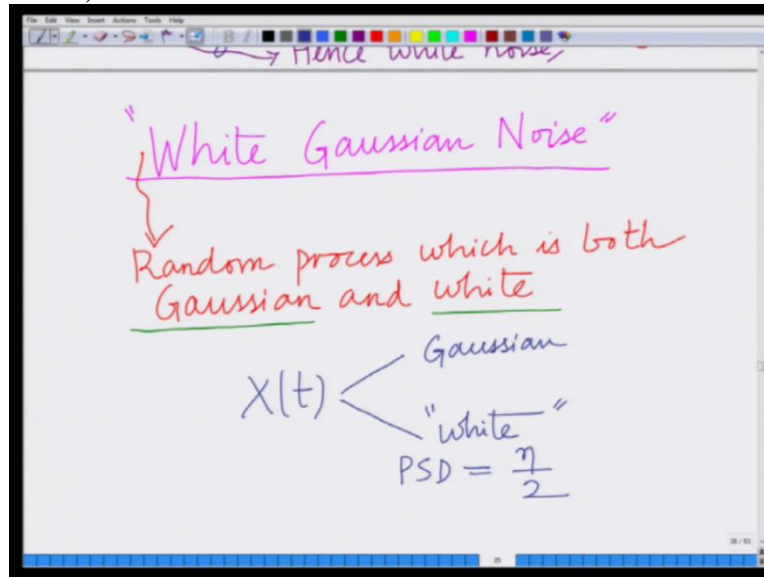 File Edit View Insert Actions Tools Help
Hence white noise,
"White Gaussian Noise"
Random process which is both
Gaussian and white
X(t)
Gaussian
"white"
PSD = η/2
25
36 / 53